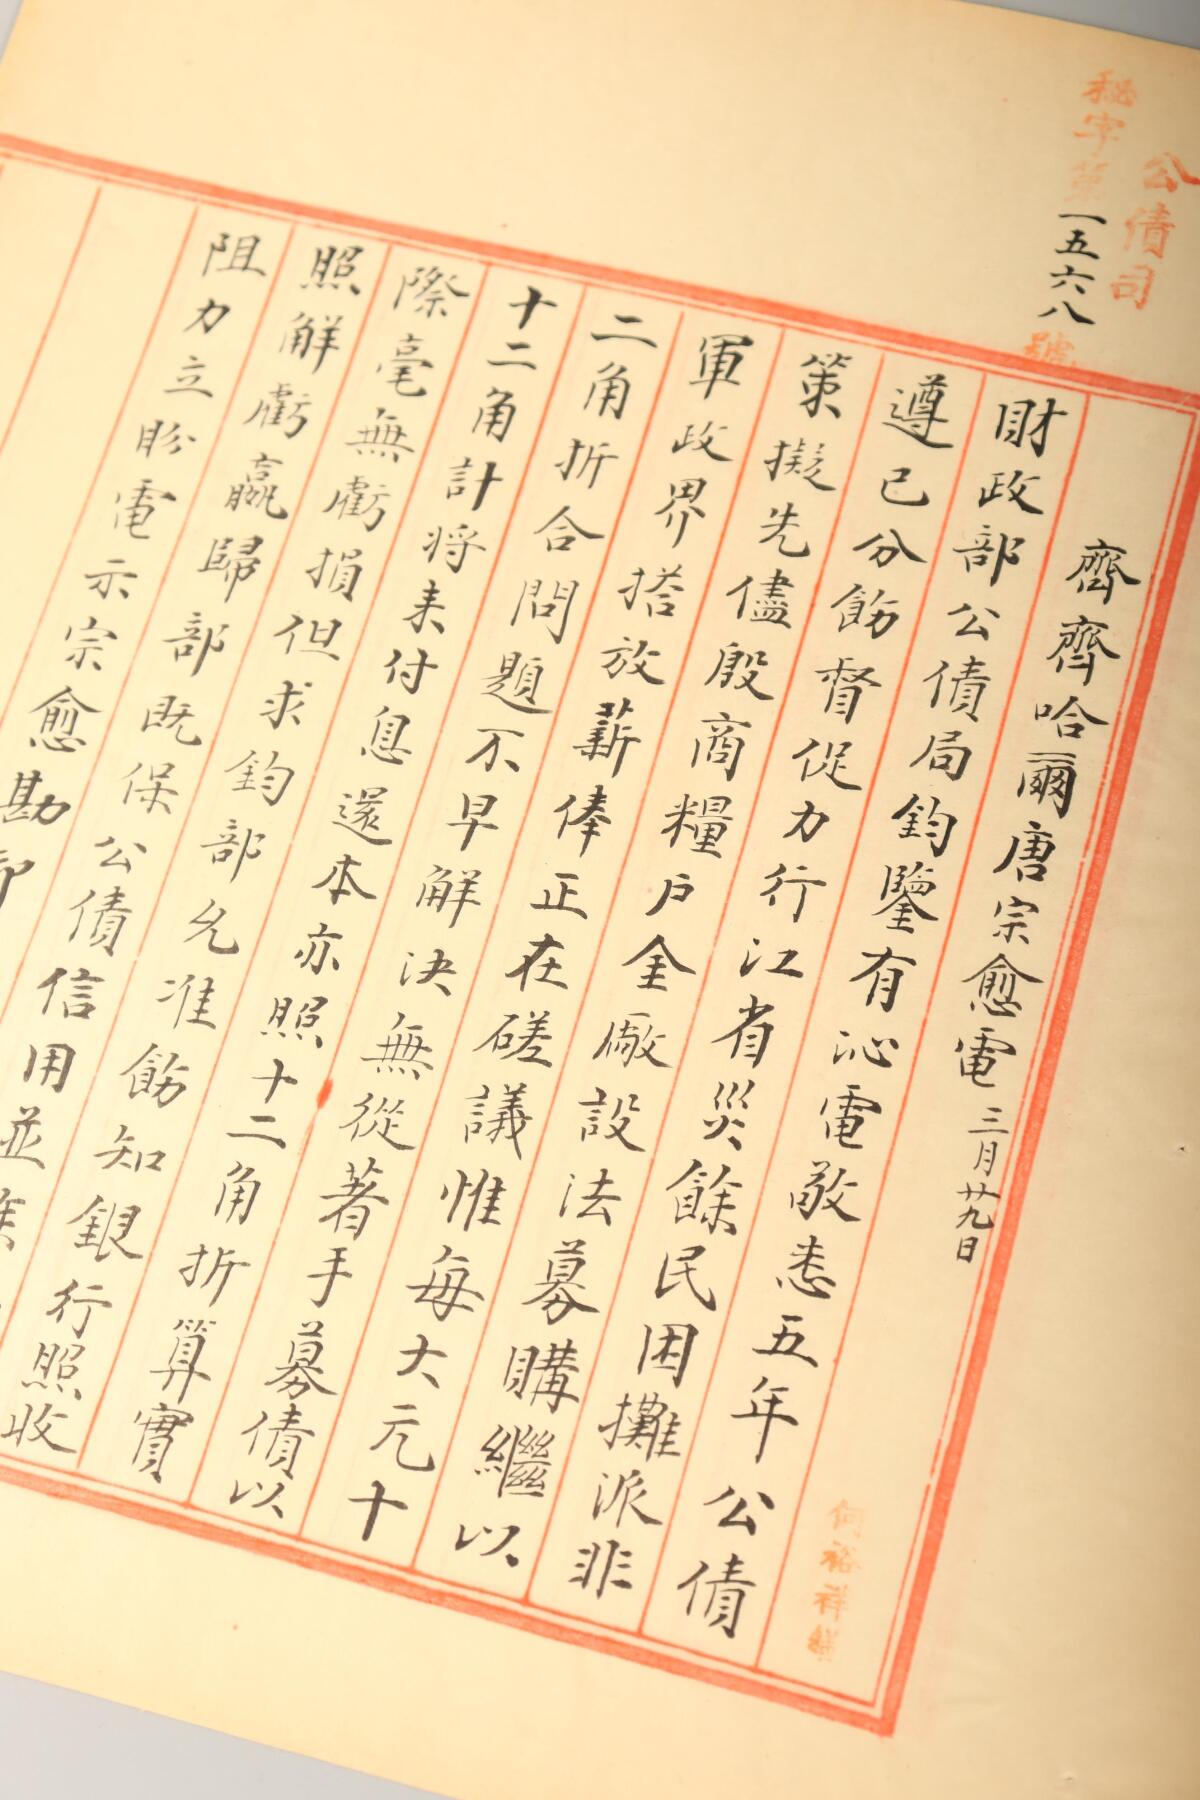 公債司
秘字第一五六八號
齊齊哈爾唐宗愈電 三月廿九日
財政部公債局鈞鑒有沁電敬悉五年公債
遵已分飭督促力行江省災餘民困攤派非
策擬先儘殷商糧户金廠設法募購繼以
軍政界搭放薪俸正在磋議惟每大元十
二角折合問題不早解決無從著手募債以
十二角計將来付息還本亦照十二角折算實
際毫無虧損但求鈞部允准飭知銀行照收
照解虧贏歸部既保公債信用並
阻力立盼電示宗愈勘
何裕祥繕